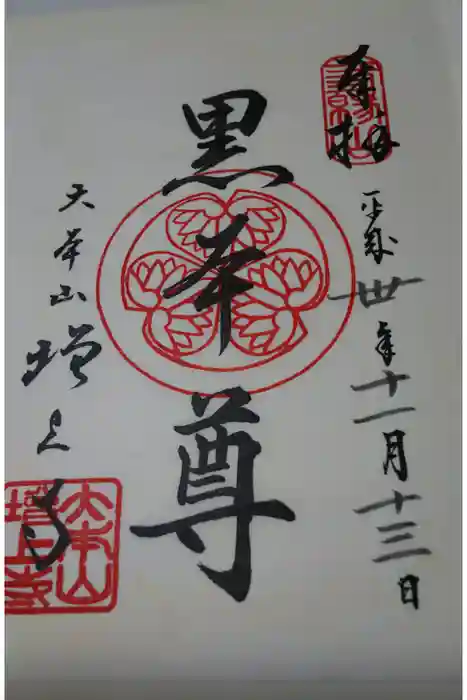 奉拝
平成卅年十一月十三日
黒本尊
大本山増上寺
大本山
増上寺